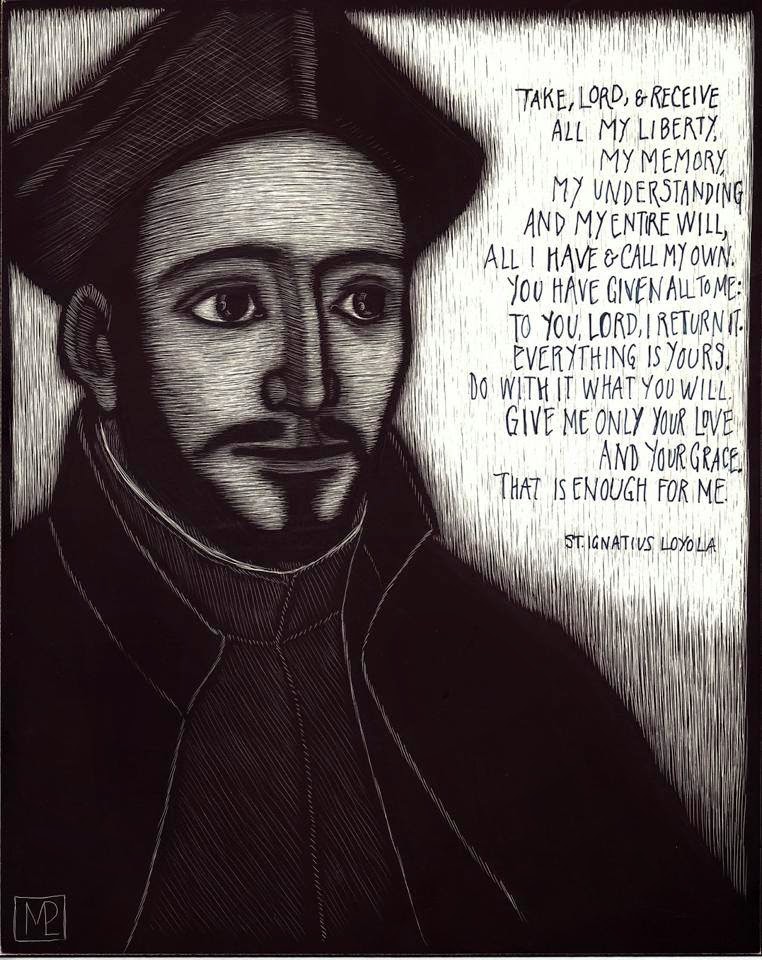 TAKE, LORD, & RECEIVE
ALL MY LIBERTY,
MY MEMORY,
MY UNDERSTANDING
AND MY ENTIRE WILL,
ALL I HAVE & CALL MY OWN.
YOU HAVE GIVEN ALL TO ME:
TO YOU, LORD, I RETURN IT.
EVERYTHING IS YOURS.
DO WITH IT WHAT YOU WILL.
GIVE ME ONLY YOUR LOVE
AND YOUR GRACE.
THAT IS ENOUGH FOR ME.
ST. IGNATIUS LOYOLA